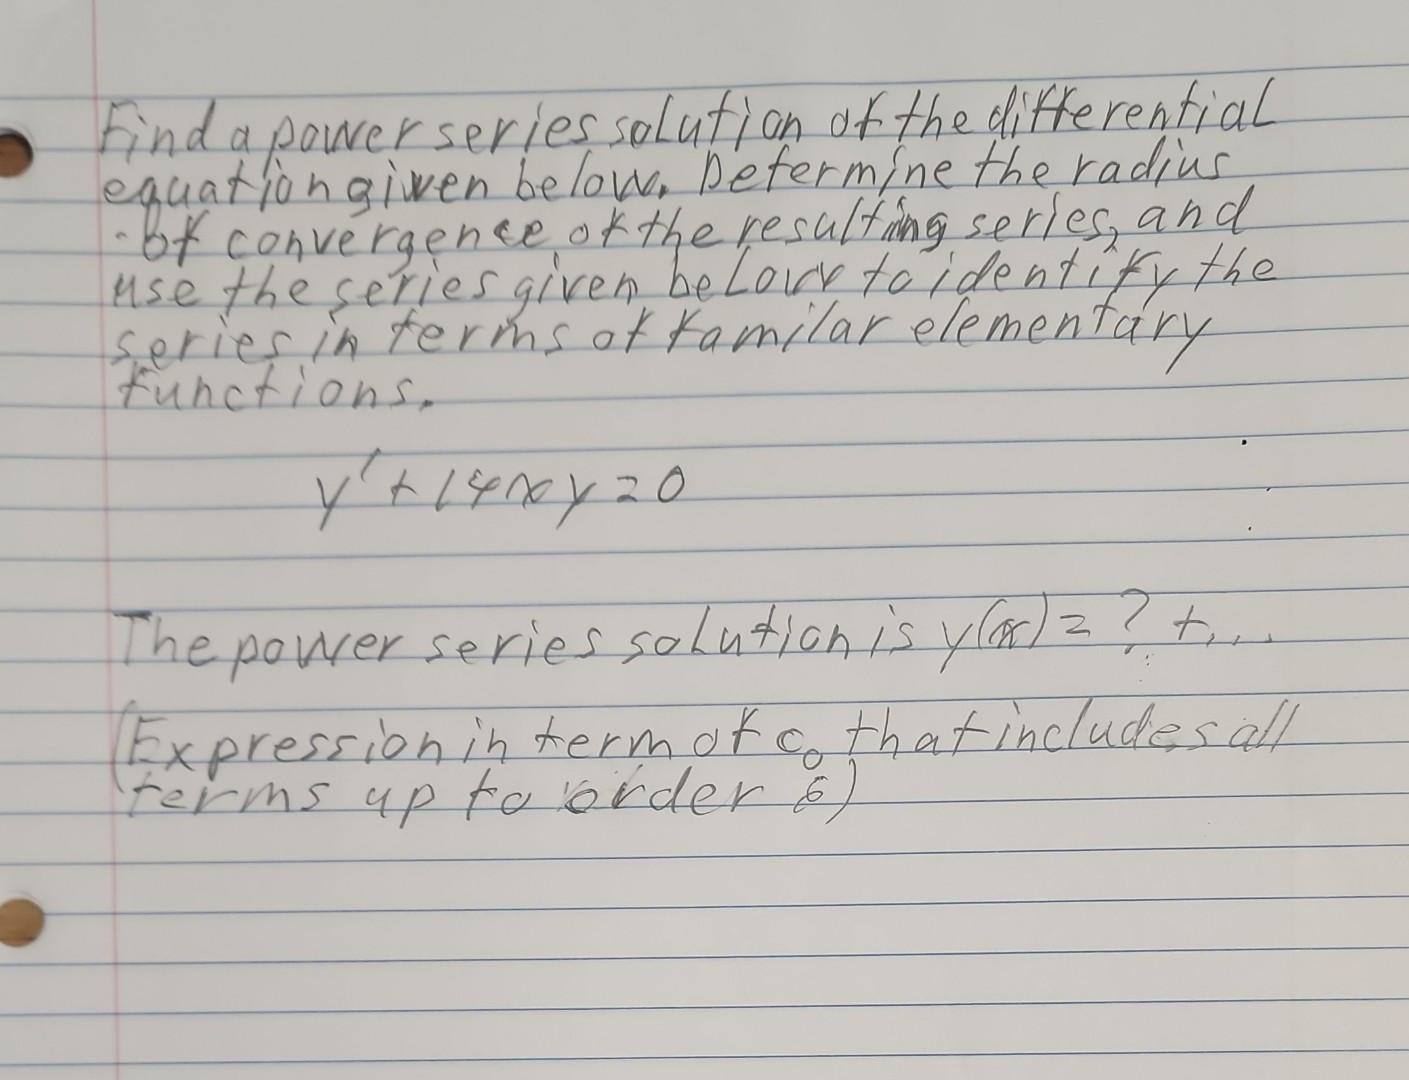 Find a power series solution of the differential
equation given below. Determine the radius
of convergence of the resulting series, and
use the series given below to identify the
series in terms of familar elementary
functions.
y' + 14xy = 0
The power series solution is y(x) = ? + ...
(Expression in term of c₀ that includes all
terms up to order 6)